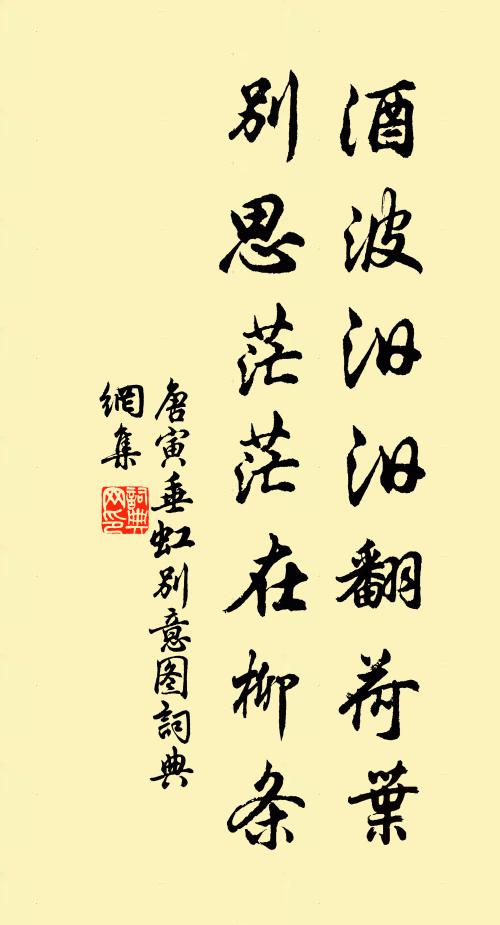 酒波汩汩翻荷葉
别思茫茫在柳条
唐寅垂虹别意图詞典
網集
詞典
网印